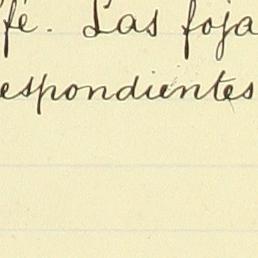 fé. Las foja
espondientes